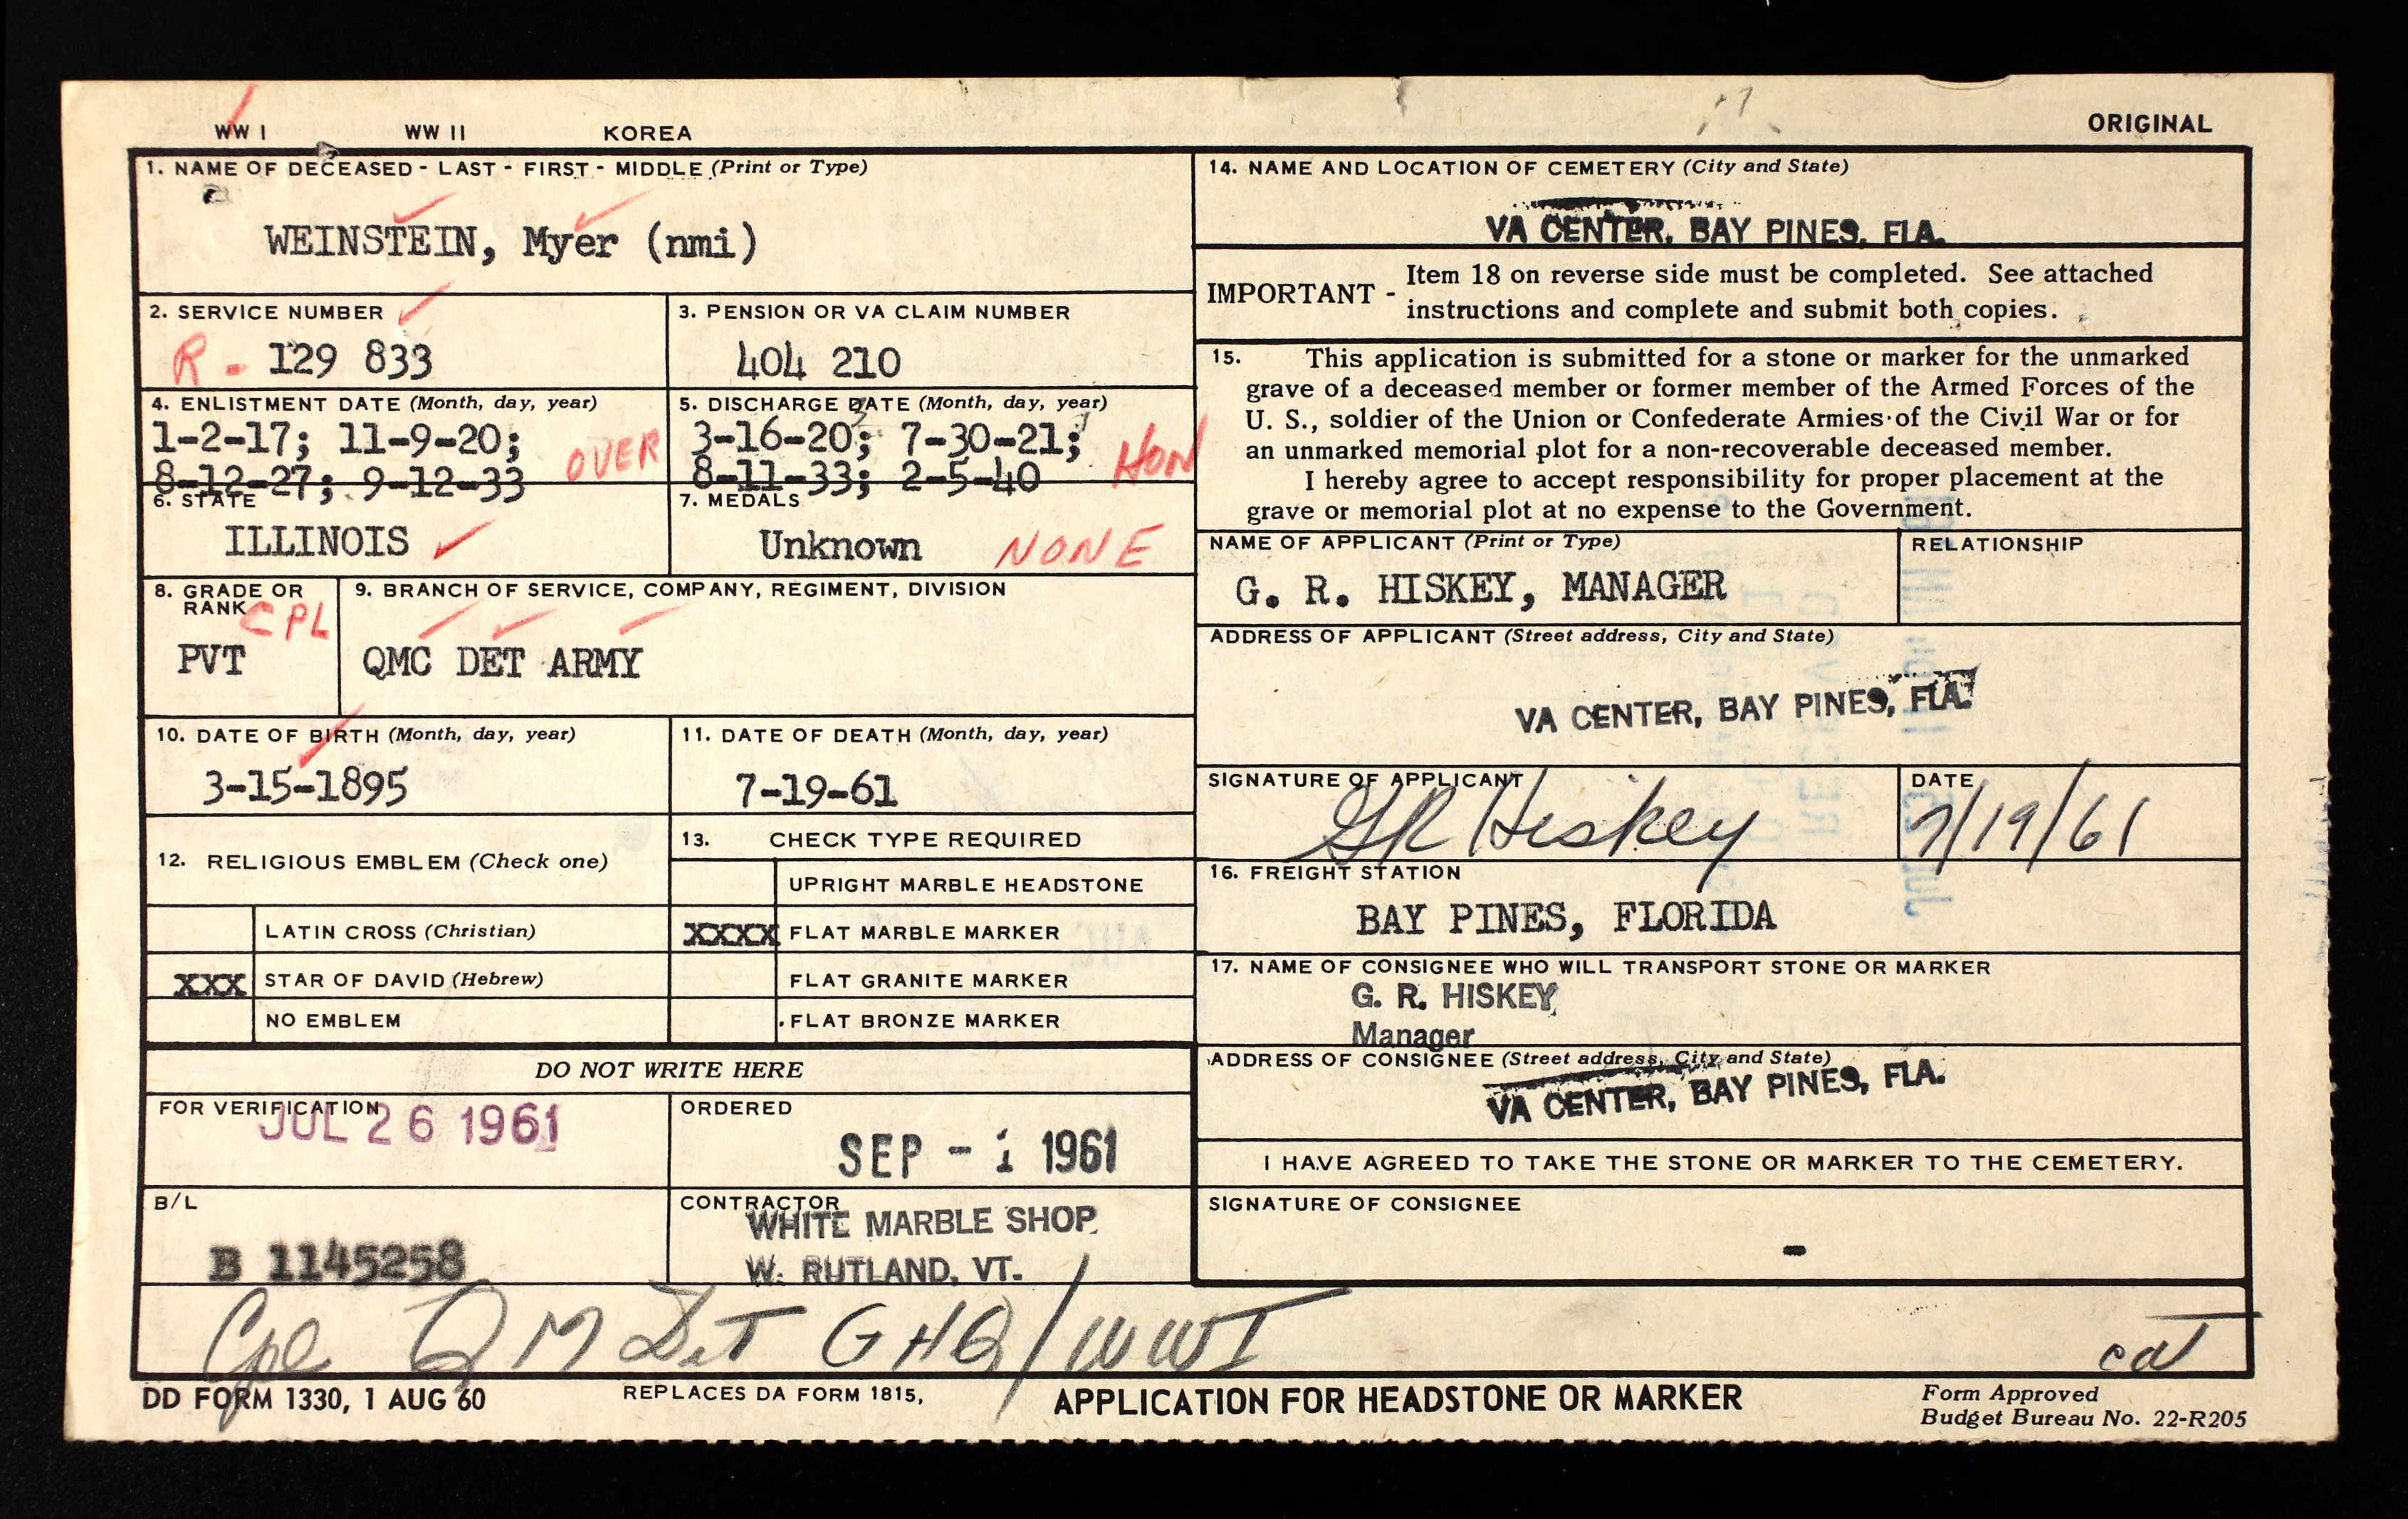 WW I WW II KOREA
ORIGINAL
1. NAME OF DECEASED - LAST - FIRST - MIDDLE (Print or Type)
WEINSTEIN, Myer (nmi)
2. SERVICE NUMBER
R - 129 833
3. PENSION OR VA CLAIM NUMBER
404 210
4. ENLISTMENT DATE (Month, day, year)
1-2-17; 11-9-20;
8-12-27; 9-12-33
OVER
5. DISCHARGE DATE (Month, day, year)
3-16-20; 7-30-21;
8-11-33; 2-5-40
HON
6. STATE
ILLINOIS
7. MEDALS
Unknown NONE
8. GRADE OR
RANK CPL
PVT
9. BRANCH OF SERVICE, COMPANY, REGIMENT, DIVISION
QMC DET ARMY
10. DATE OF BIRTH (Month, day, year)
3-15-1895
11. DATE OF DEATH (Month, day, year)
7-19-61
12. RELIGIOUS EMBLEM (Check one)
LATIN CROSS (Christian)
XXX STAR OF DAVID (Hebrew)
NO EMBLEM
13. CHECK TYPE REQUIRED
UPRIGHT MARBLE HEADSTONE
XXXX FLAT MARBLE MARKER
FLAT GRANITE MARKER
FLAT BRONZE MARKER
DO NOT WRITE HERE
FOR VERIFICATION
JUL 26 1961
ORDERED
SEP - 1 1961
B/L
B 1145258
CONTRACTOR
WHITE MARBLE SHOP
W. RUTLAND, VT.
14. NAME AND LOCATION OF CEMETERY (City and State)
VA CENTER, BAY PINES, FLA.
IMPORTANT - Item 18 on reverse side must be completed. See attached
instructions and complete and submit both copies.
15. This application is submitted for a stone or marker for the unmarked
grave of a deceased member or former member of the Armed Forces of the
U. S., soldier of the Union or Confederate Armies of the Civil War or for
an unmarked memorial plot for a non-recoverable deceased member.
I hereby agree to accept responsibility for proper placement at the
grave or memorial plot at no expense to the Government.
NAME OF APPLICANT (Print or Type)
G. R. HISKEY, MANAGER
RELATIONSHIP
ADDRESS OF APPLICANT (Street address, City and State)
VA CENTER, BAY PINES, FLA.
SIGNATURE OF APPLICANT
GR Hiskey
DATE
7/19/61
16. FREIGHT STATION
BAY PINES, FLORIDA
17. NAME OF CONSIGNEE WHO WILL TRANSPORT STONE OR MARKER
G. R. HISKEY
Manager
ADDRESS OF CONSIGNEE (Street address, City and State)
VA CENTER, BAY PINES, FLA.
I HAVE AGREED TO TAKE THE STONE OR MARKER TO THE CEMETERY.
SIGNATURE OF CONSIGNEE
-
Cpl QM Det GHQ/WWI
cat
DD FORM 1330, 1 AUG 60
REPLACES DA FORM 1815,
APPLICATION FOR HEADSTONE OR MARKER
Form Approved
Budget Bureau No. 22-R205